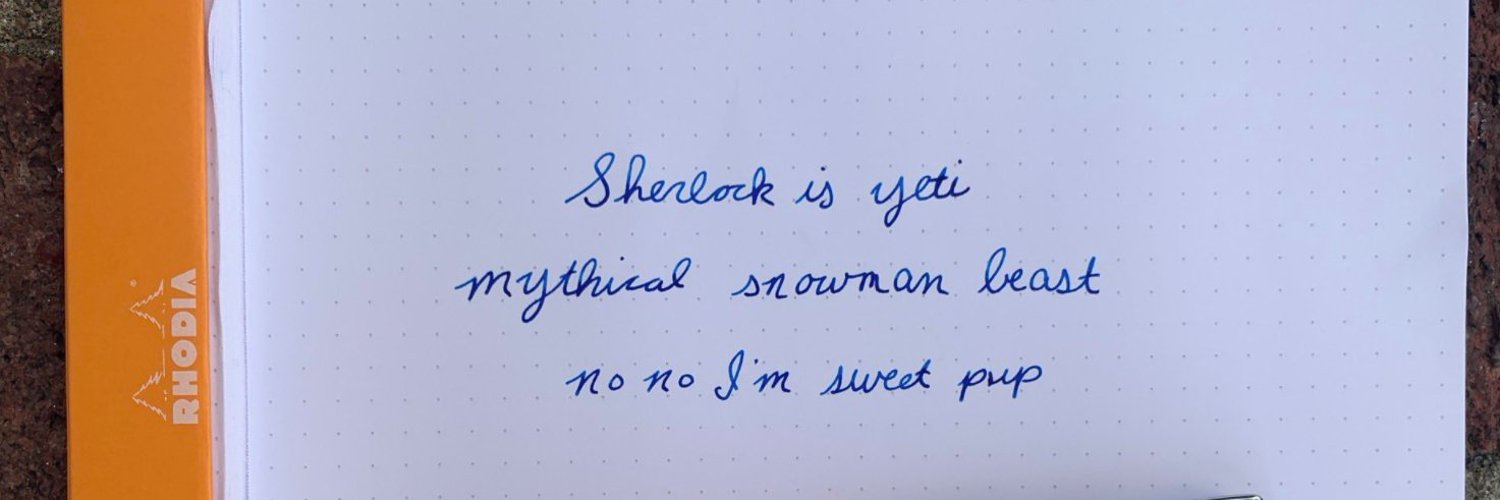 Sherlock is yeti
mythical snowman beast
no no I'm sweet pup
RHODIA